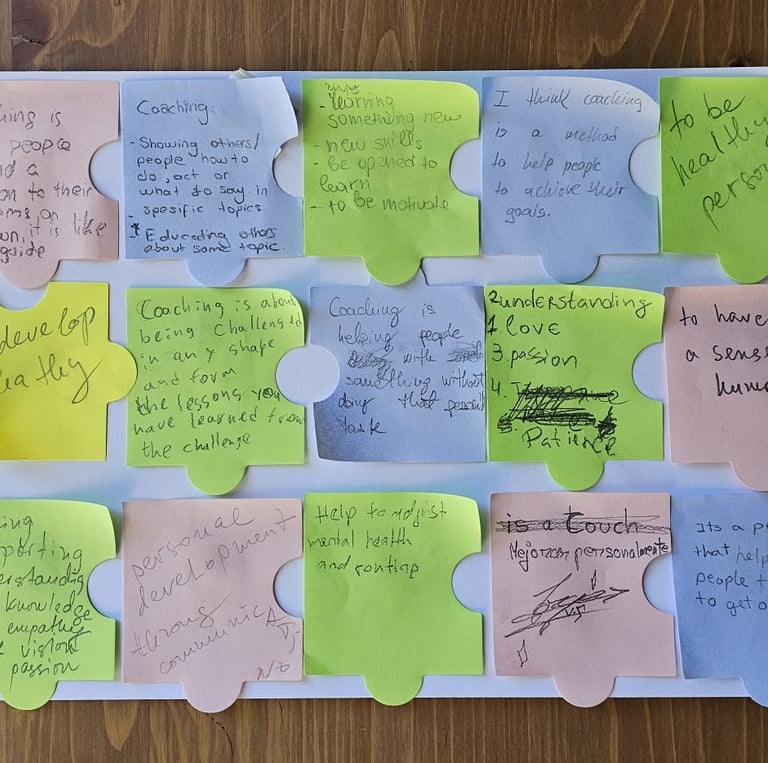 ing is
people
d a
on to their
on
n, it is like
guide
Coaching:
- Showing others/
people how to
do, act or
what do say in
spesific topics
* Educating others
about some topic.
- learning
something new
- new skills
- be opened to
learn
- to be motivate
I think coaching
is a method
to help people
to achieve their
goals.
to be
healthy
person
develop
eathy
Coaching is about
being challenged
in any shape
and form
the lessons you
have learned from
the challenge
Coaching is
helping people
with
something without
doing that
task
2 understanding
1. love
3. passion
4.
5. Patience
to have
a sense
humo
ing
pporting
erstanding
knowledge
empathy
vision
passion
personal
development
throug
communic
Help to adjist
mental health
and
is a Couch
Mejorar personalmente
Its a pe
that help
people t
to get o